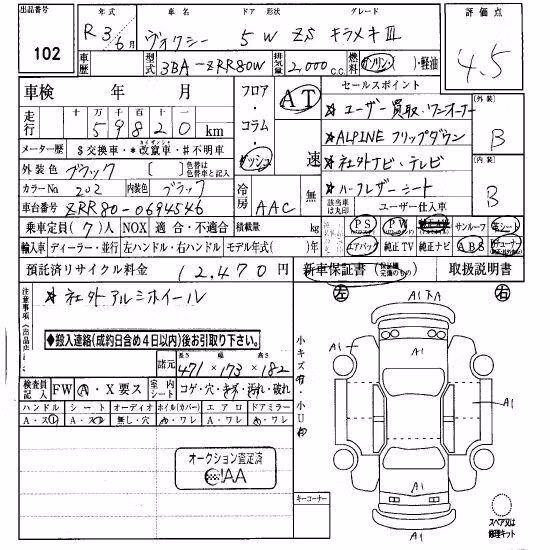 出品番号 年式 車名 ドア 形状 グレード 評価点
102 R3/6月 ヴォクシー 5W ZS キラメキⅢ 4.5
車歴 型式 3BA-ZRR80W 排気量 2,000c.c. 燃料 ガソリン ( )・軽油
車検 年 月 フロア・コラム・ダッシュ AT セールスポイント
走行 十万千百十 59820km 速 ☆ユーザー買取.ワンオーナー 外装 B
メーター歴 $交換車・*改ざん車・#不明車 ☆ALPINE フリップダウン
外装色 ブラック [ ] 色替は色替車と記入 ☆社外ナビ・テレビ 内装 B
カラーNo 202 内装色 ブラック 冷房 AAC 無 ☆ハーフレザーシート
車台番号 ZRR80-0694546 該当車は丸印 ユーザー仕入車
乗車定員 (7)人 NOX 適合・不適合 積載量 kg PS PW サンルーフ 革シート
輸入車 ディーラー・並行 左ハンドル・右ハンドル モデル年式( )年 エアバック 純正TV 純正ナビ ABS
預託済リサイクル料金 12,470円 新車保証書(保証欄完備のもの) 取扱説明書
注意事項(出品店) ☆社外アルミホイール
◆搬入連絡(成約日含め4日以内)後お引取り下さい。
諸元 長さ 471 × 幅 173 × 高さ 182
検査員記入 FW A・X要ス 室内シート コゲ・穴・キズ・汚れ・破れ
ハンドル シート オーディオ ホイル(カバー) エアロ ドアミラー
A・ス A・ス 無し・穴 ワ・ワレ A・ワレ ワ・ワレ
オークション査定済
AA
キーコーナー
小キズ有・小U有
左 右
A1
A1
A1
A1
A1
スペア又は修理キット